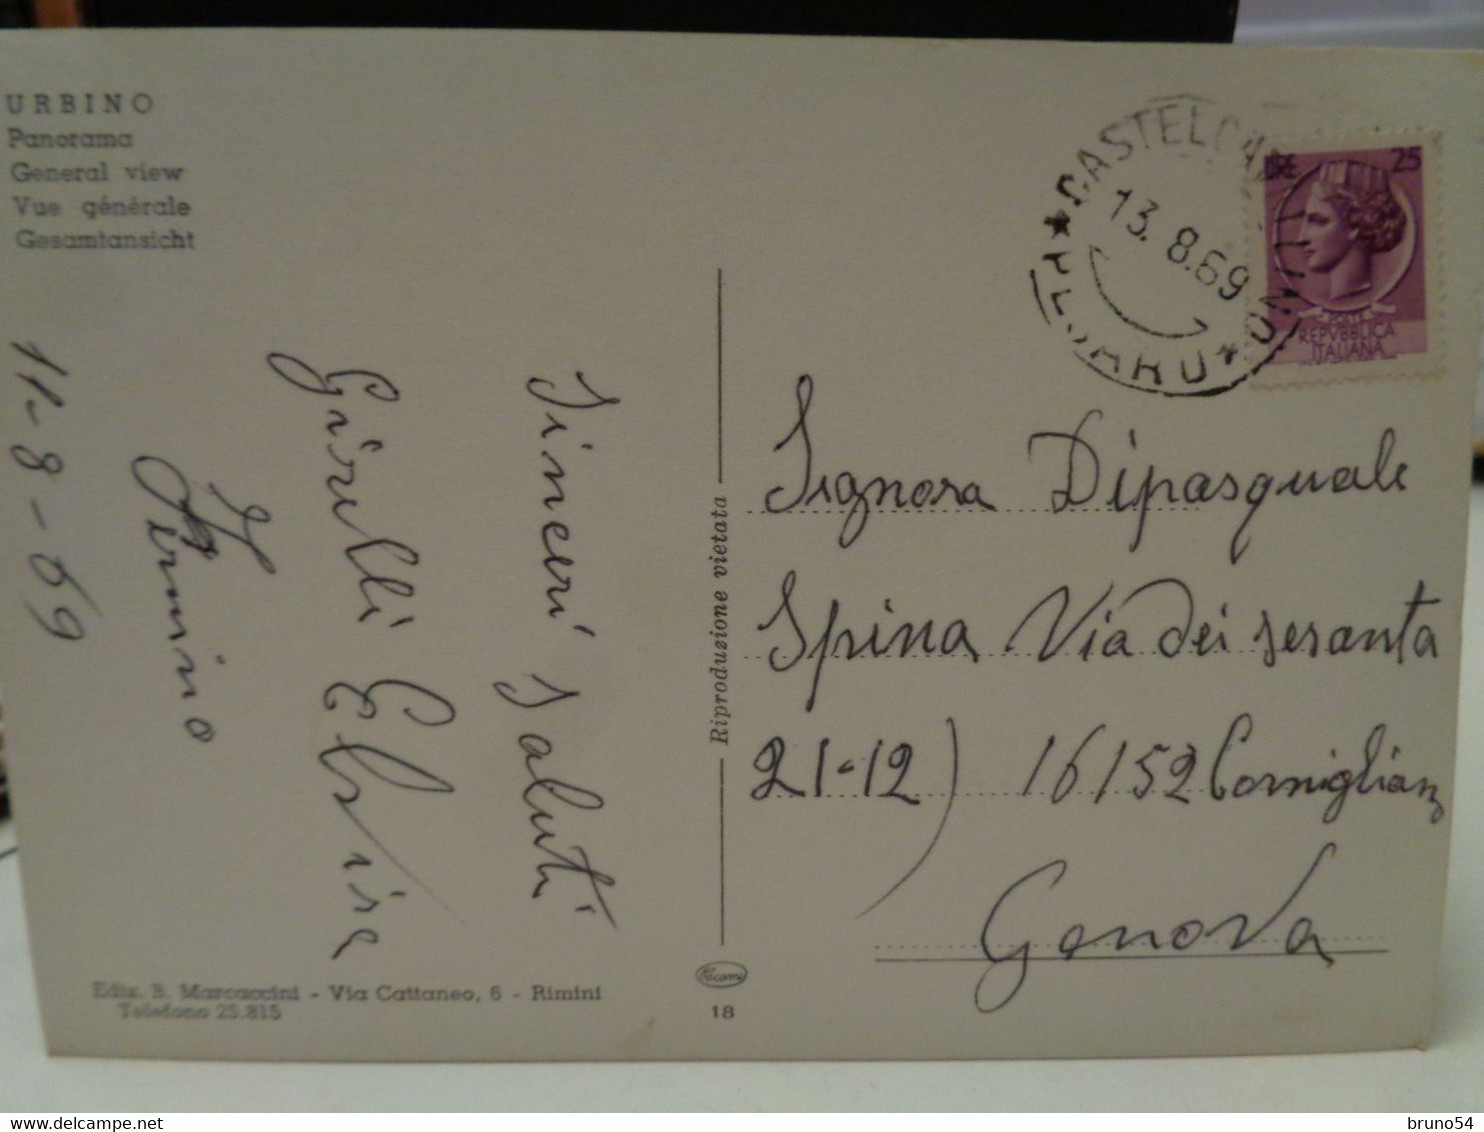 URBINO
Panorama
General view
Vue générale
Gesamtansicht
Sinceri saluti
Girelli Elvira
Firmino
11-8-69
Ediz. B. Marcaccini - Via Cattaneo, 6 - Rimini
Telefono 25.815
Riproduzione vietata
18
13.8.69
PESARO
LIRE 25
POSTE
REPVBBLICA
ITALIANA
Signora Dipasquale
Spina Via dei sesanta
21-12) 16152 Cornigliano
Genova
bruno54